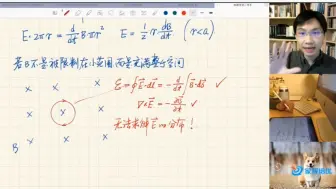 E·2πr = d/dt B·πr²   E = 1/2 r dB/dt   (r<a)
若B不是被限制在小范围 而是充满整个空间
ε = ∮E·dl = -d/dt ∫B·ds ✓
∇×E = -∂B/∂t ✓
无法求解E的分布！
B